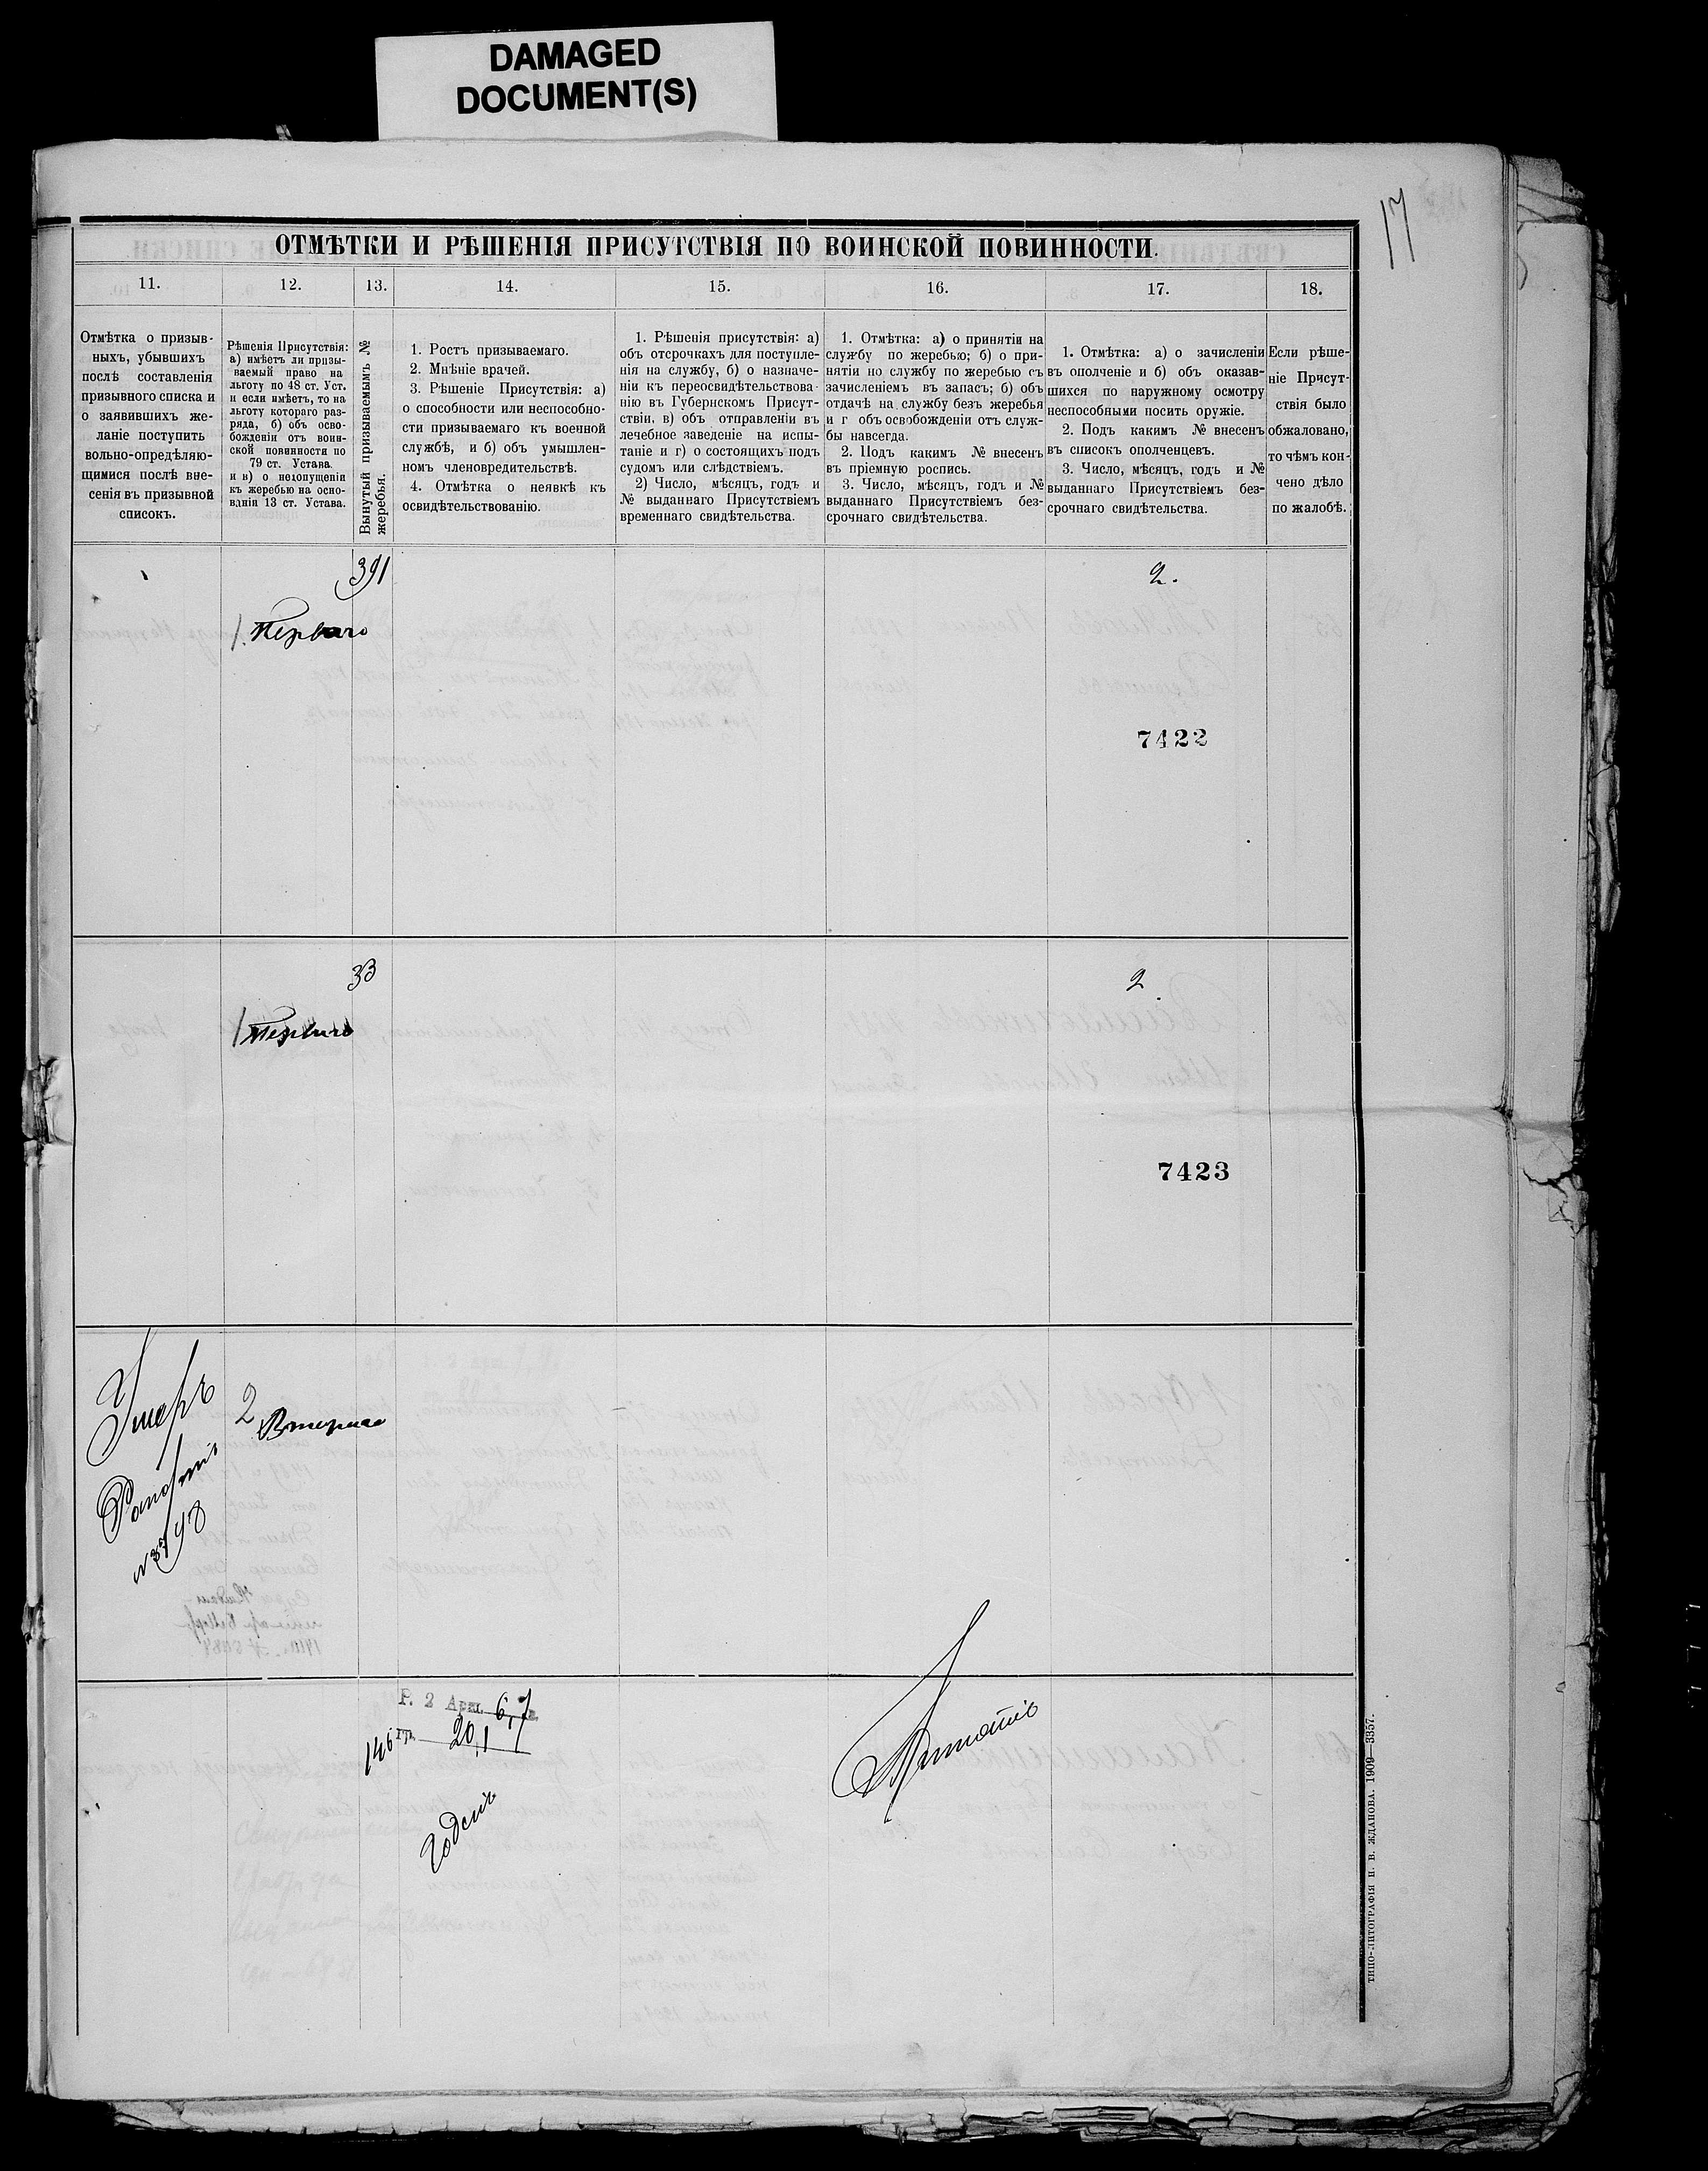 DAMAGED
DOCUMENT(S)
17
ОТМѢТКИ И РѢШЕНІЯ ПРИСУТСТВІЯ ПО ВОИНСКОЙ ПОВИННОСТИ.
11.
12.
13.
14.
15.
16.
17.
18.
Отмѣтка о призыв-
ныхъ, убывшихъ
послѣ составленія
призывного списка и
о заявившихъ же-
ланіе поступить
вольно-опредѣляю-
щимися послѣ вне-
сенія въ призывной
списокъ.
Рѣшенія Присутствія:
а) имѣетъ ли призы-
ваемый право на
льготу по 48 ст. Уст.
и если имѣетъ, то на
льготу котораго раз-
ряда, б) объ осво-
божденіи отъ воин-
ской повинности по
79 ст. Устава.
и в) о недопущеніи
къ жеребью на осно-
ваніи 13 ст. Устава.
Вынутый призываемымъ №
жеребья.
1. Ростъ призываемаго.
2. Мнѣніе врачей.
3. Рѣшеніе Присутствія: а)
о способности или неспособно-
сти призываемаго къ военной
службѣ, и б) объ умышлен-
номъ членовредительствѣ.
4. Отмѣтка о неявкѣ къ
освидѣтельствованію.
1. Рѣшенія присутствія: а)
объ отсрочкахъ для поступле-
нія на службу, б) о назначе-
ніи къ переосвидѣтельствова-
нію въ Губернскомъ Присут-
ствіи, в) объ отправленіи въ
лечебное заведеніе на испы-
таніе и г) о состоящихъ подъ
судомъ или слѣдствіемъ.
2) Число, мѣсяцъ, годъ и
№ выданнаго Присутствіемъ
временнаго свидѣтельства.
1. Отмѣтка: а) о принятіи на
службу по жеребью; б) о при-
нятіи по службу по жеребью съ
зачисленіемъ въ запасъ; б) объ
отдачѣ на службу безъ жеребья
и г объ освобожденіи отъ служ-
бы навсегда.
2. Подъ какимъ № внесенъ
въ пріемную роспись.
3. Число, мѣсяцъ, годъ и №
выданнаго Присутствіемъ без-
срочнаго свидѣтельства.
1. Отмѣтка: а) о зачисленіи
въ ополченіе и б) объ оказав-
шихся по наружному осмотру
неспособными носить оружіе.
2. Подъ какимъ № внесенъ
въ списокъ ополченцевъ.
3. Число, мѣсяцъ, годъ и №
выданнаго Присутствіемъ без-
срочнаго свидѣтельства.
Если рѣше-
ніе Присут-
ствія было
обжаловано,
то чѣмъ кон-
чено дѣло
по жалобѣ.
391
2.
1. Перваго
7422
33
2
1 Перваго
7423
Умеръ
2 Второго
Рапортъ
Р. 2 Арш. 6,7 в.
146 гр. 20,1
Годенъ
Принятъ
ТИПО-ЛИТОГРАФІЯ П. В. ЖДАНОВА. 1909—3357.